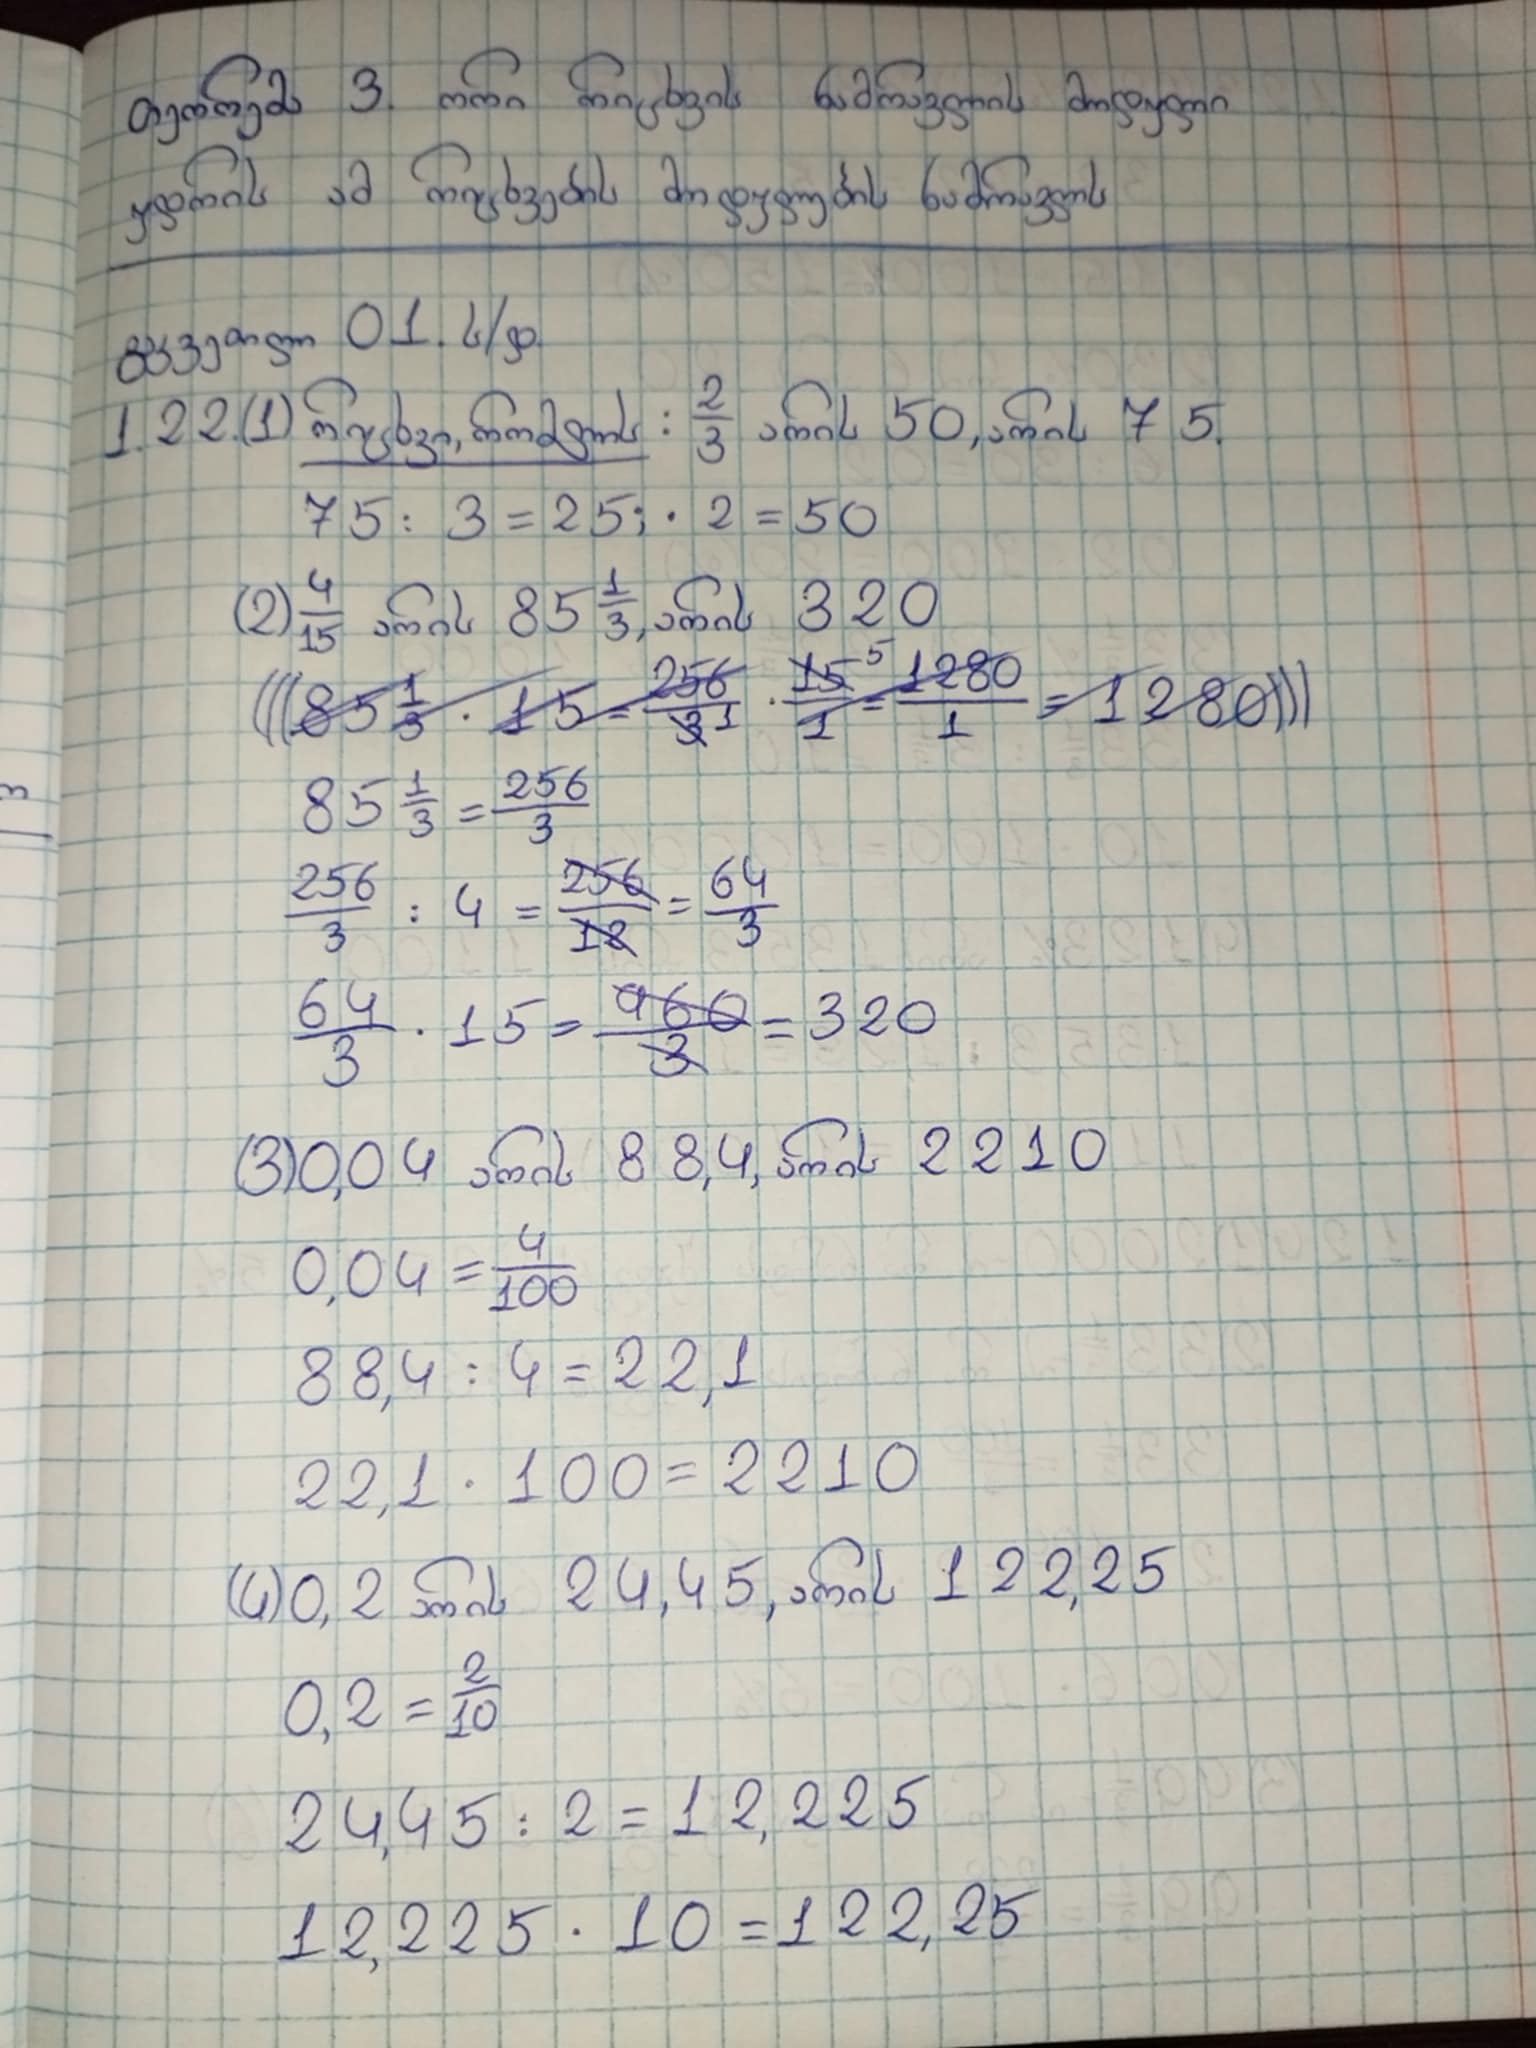 თეორემა 3. ორი რიცხვის ნამრავლის მოდული
უდრის ამ რიცხვების მოდულების ნამრავლს
გაკვეთილი 01. ს/დ.
1.22.(1) რიცხვი, რომლის: 2/3 არის 50, არის 75.
75 : 3 = 25; · 2 = 50
(2) 4/15 არის 85 1/3, არის 320
(((85 1/3 · 15 = 256/3 1 · 15 5/1 = 1280/1 = 1280)))
85 1/3 = 256/3
256/3 : 4 = 256/12 = 64/3
64/3 · 15 = 960/3 = 320
(3) 0,04 არის 88,4, არის 2210
0,04 = 4/100
88,4 : 4 = 22,1
22,1 · 100 = 2210
(4) 0,2 არის 24,45, არის 122,25
0,2 = 2/10
24,45 : 2 = 12,225
12,225 · 10 = 122,25